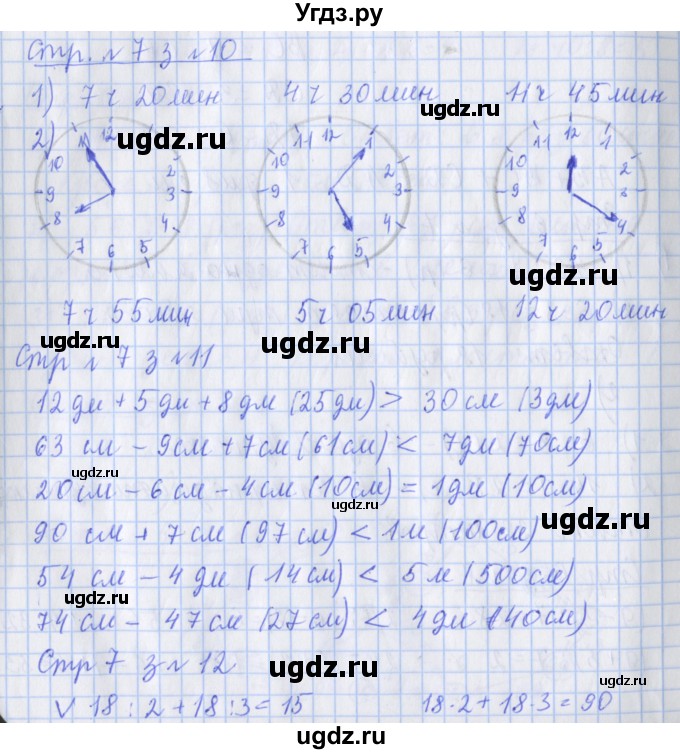 Угдз.ру
Стр. № 7 з № 10
1) 7 ч 20 мин 4 ч 30 мин 11 ч 45 мин
2)
11 12 1
10 2
9 3
8 4
7 6 5
11 12 1
10 2
9 3
8 4
7 6 5
11 12 1
10 2
9 3
8 4
7 6 5
7 ч 55 мин 5 ч 05 мин 12 ч 20 мин
Стр № 7 з № 11
12 дм + 5 дм + 8 дм (25 дм) > 30 см (3 дм)
63 см - 9 см + 7 см (61 см) < 7 дм (70 см)
20 см - 6 см - 4 см (10 см) = 1 дм (10 см)
90 см + 7 см (97 см) < 1 м (100 см)
54 см - 4 дм (14 см) < 5 м (500 см)
74 см - 47 см (27 см) < 4 дм (40 см)
Стр 7 з № 12
V 18 : 2 + 18 : 3 = 15 18 · 2 + 18 · 3 = 90
ugdz.ru
ugdz.ru
ugdz.ru
ugdz.ru
ugdz.ru
ugdz.ru
ugdz.ru
ugdz.ru
ugdz.ru
ugdz.ru
ugdz.ru
ugdz.ru
ugdz.ru